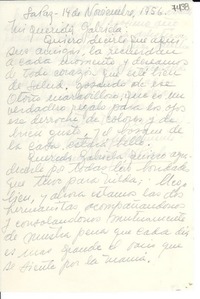 La Paz - 14 de Noviembre, 1956.
Mi querida Gabriela:
Quiero decirte que aquí
sus amigas, la recuerdan
a cada momento y deseamos
de todo corazón que esté bien
de salud. Gozando de ese
Otoño maravilloso, que es un
verdadero regalo para los ojos
ese derroche de colores y de
brisa, y el bosque de
la casa estará bello.
Querida Gabriela quiero agra-
decerle por todas las bondades
que tuvo para Hilda,
bien, y ahora estamos las
hermanitas acompañándonos
y consolándonos mutuamente
de nuestra pena que cada día
es mas grande el vacío que
se siente por la mamá.